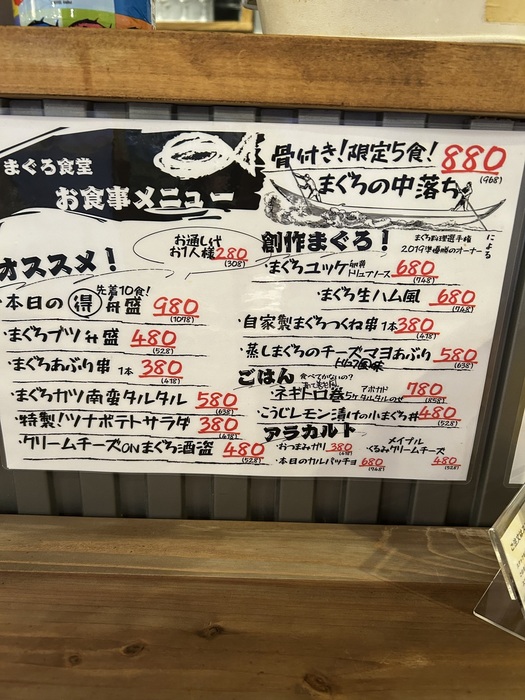 まぐろ食堂
お食事メニュー
骨付き!限定5食!880
(968)
まぐろの中落ち
お通し代
お1人様280
(308)
オススメ!
先着10食!
本日の得舟盛 980
(1078)
・まぐろブツ舟盛 480
(528)
・まぐろあぶり串 1本 380
(418)
・まぐろガツ南蛮タルタル 580
(638)
・特製!ツナポテトサラダ 380
(418)
・クリームチーズONまぐろ酒盗 480
(528)
創作まぐろ!
まぐろ料理選手権
2019準優勝のオーナー
による
・まぐろユッケ 卵黄トリュフソース 680
(748)
・まぐろ生ハム風 680
(748)
・自家製まぐろつくね串1本380
(418)
・蒸しまぐろのチーズマヨあぶり 580
(638)
トリュフ風味
ごはん
食べてかないの?
・ネギトロ巻 アボカド
タルタルのせ 780
(858)
・こうじレモン漬けの小まぐろ丼480
(528)
アラカルト
・おつまみガリ 380
(418)
・本日のカルパッチョ 680
(748)
メイプル
・くるみクリームチーズ
480
(528)